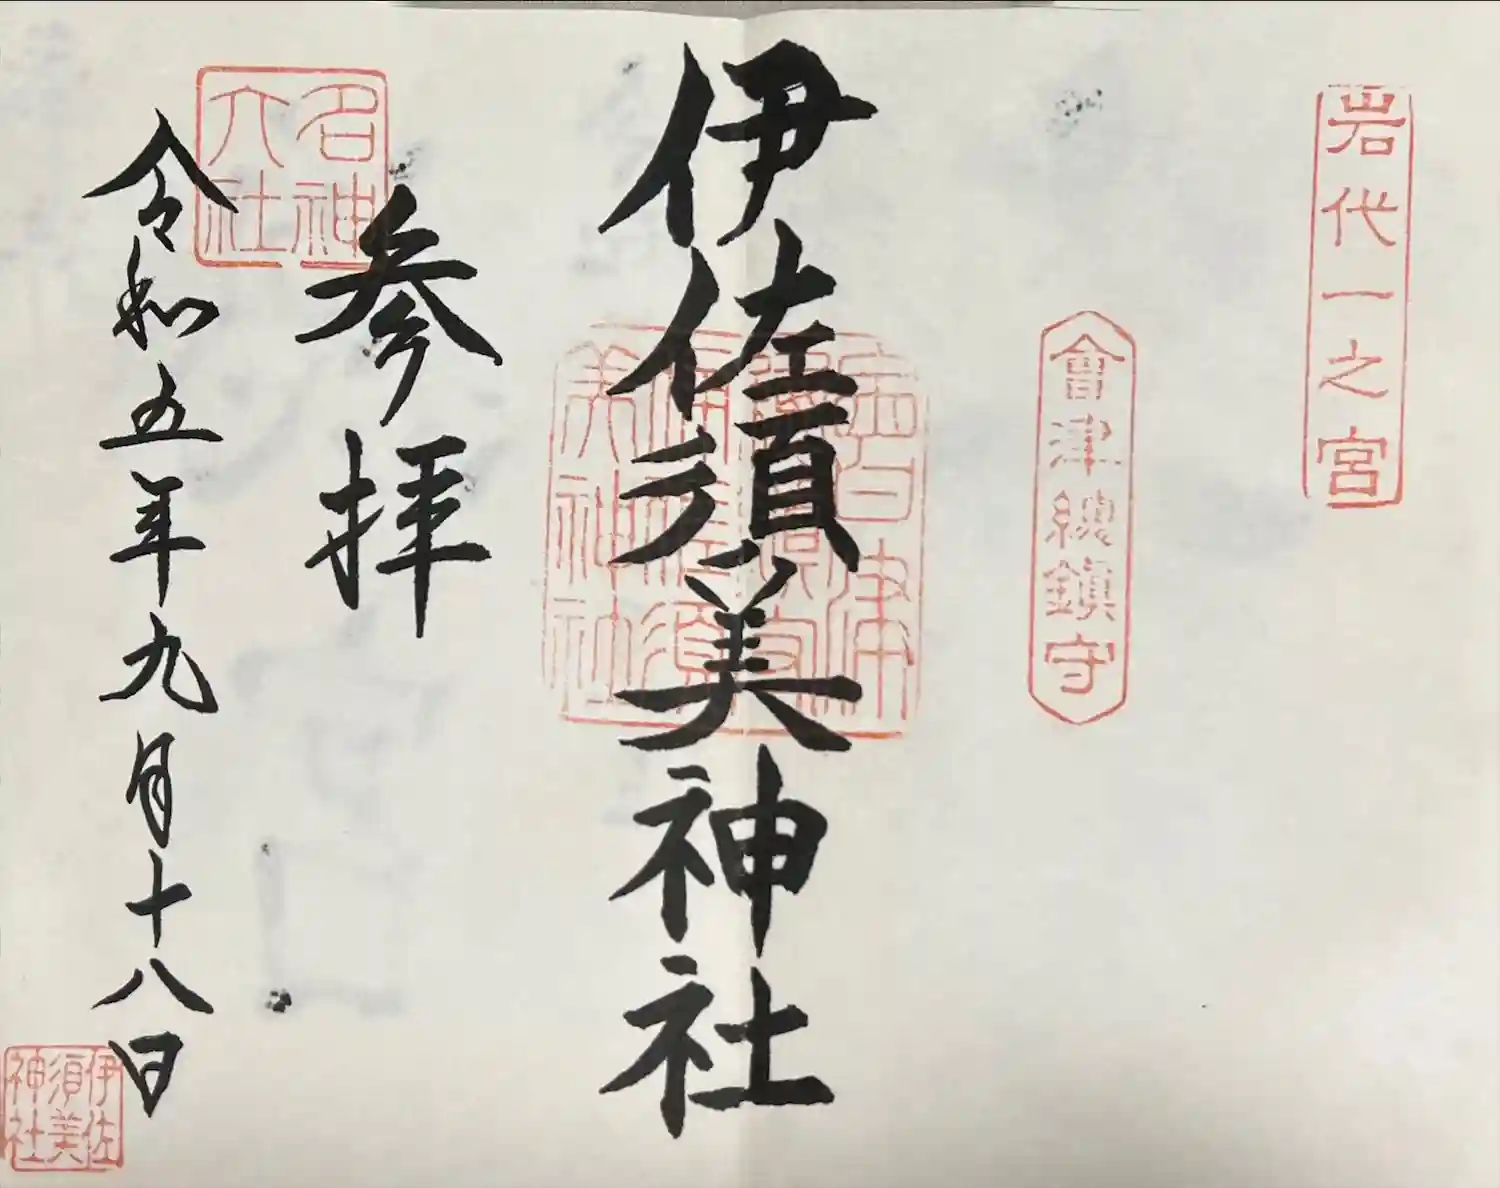 岩代一之宮
會津総鎮守
伊佐須美神社
伊佐須
美神社
参拝
名神
大社
令和五年九月十八日
伊佐
須美
神社